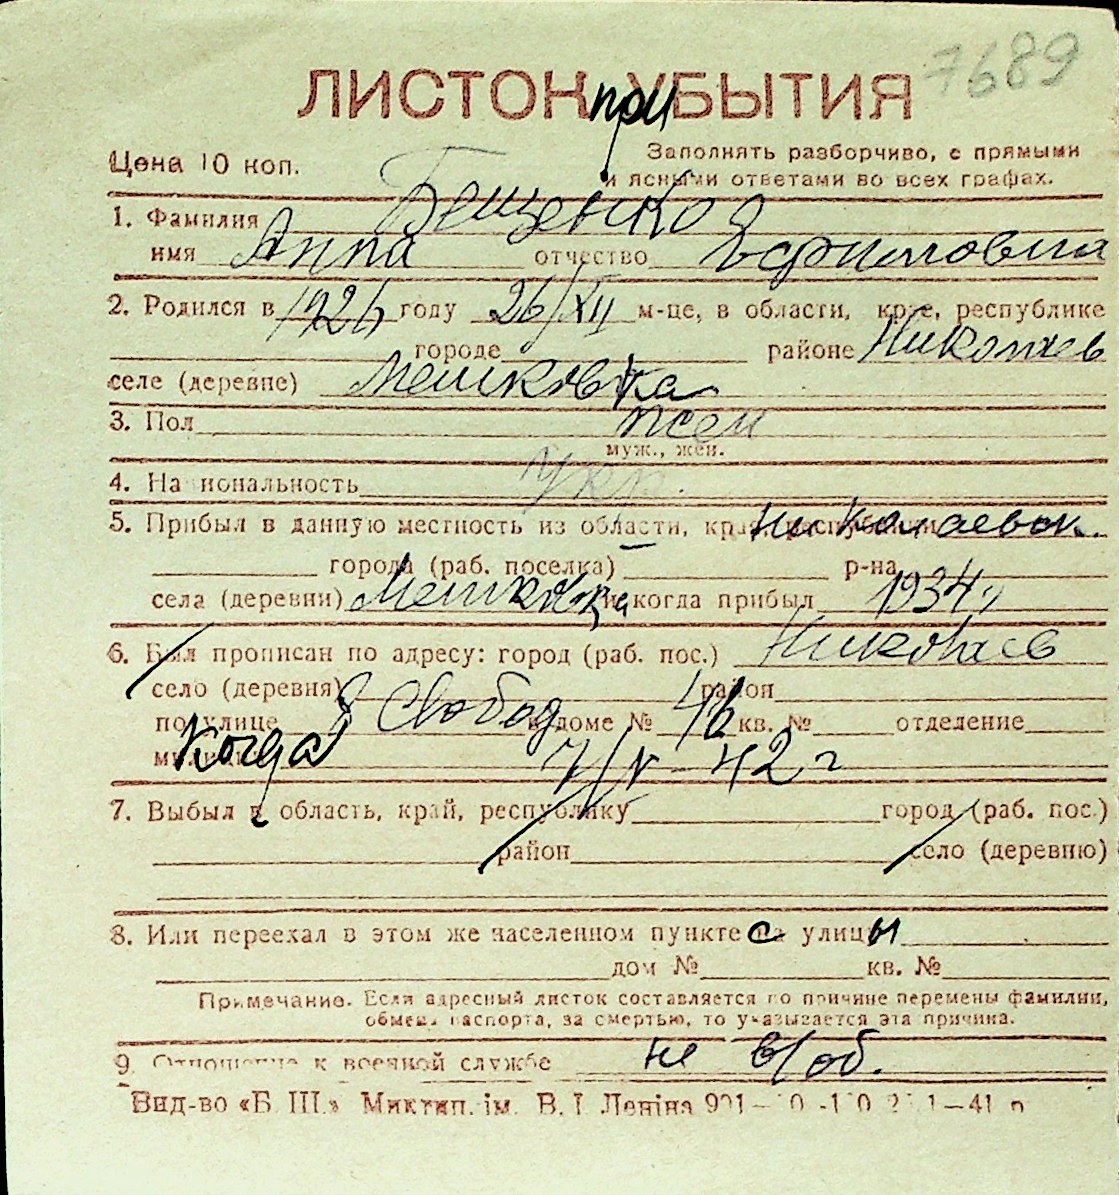 7689
ЛИСТОК при УБЫТИЯ
Цена 10 коп.
Заполнять разборчиво, с прямыми
и ясными ответами во всех графах.
1. Фамилия Бещенко
имя Анна отчество
2. Родился в 1926 году 26/XII м-це, в области, крае, республике
городе районе Николаев
селе (деревне) Мешковка
3. Пол жен
муж., жен.
4. Национальность укр.
5. Прибыл в данную местность из области, края, республики Николаевск.
города (раб. поселка) р-на
села (деревни) Мешковка и когда прибыл 1934 г
6. Был прописан по адресу: город (раб. пос.) Николаев
село (деревня) район
по улице 8 Свобод в доме № 46 кв. № отделение
Когда 7/V-42 г
7. Выбыл в область, край, республику город (раб. пос.)
район село (деревню)
8. Или переехал в этом же населенном пункте с улицы
дом № кв. №
Примечание. Если адресный листок составляется по причине перемены фамилии,
обмена паспорта, за смертью, то указывается эта причина.
9. Отношение к военной службе не в/об.
Вид-во «Б. Ш.» Миктип. ім. В. І. Леніна